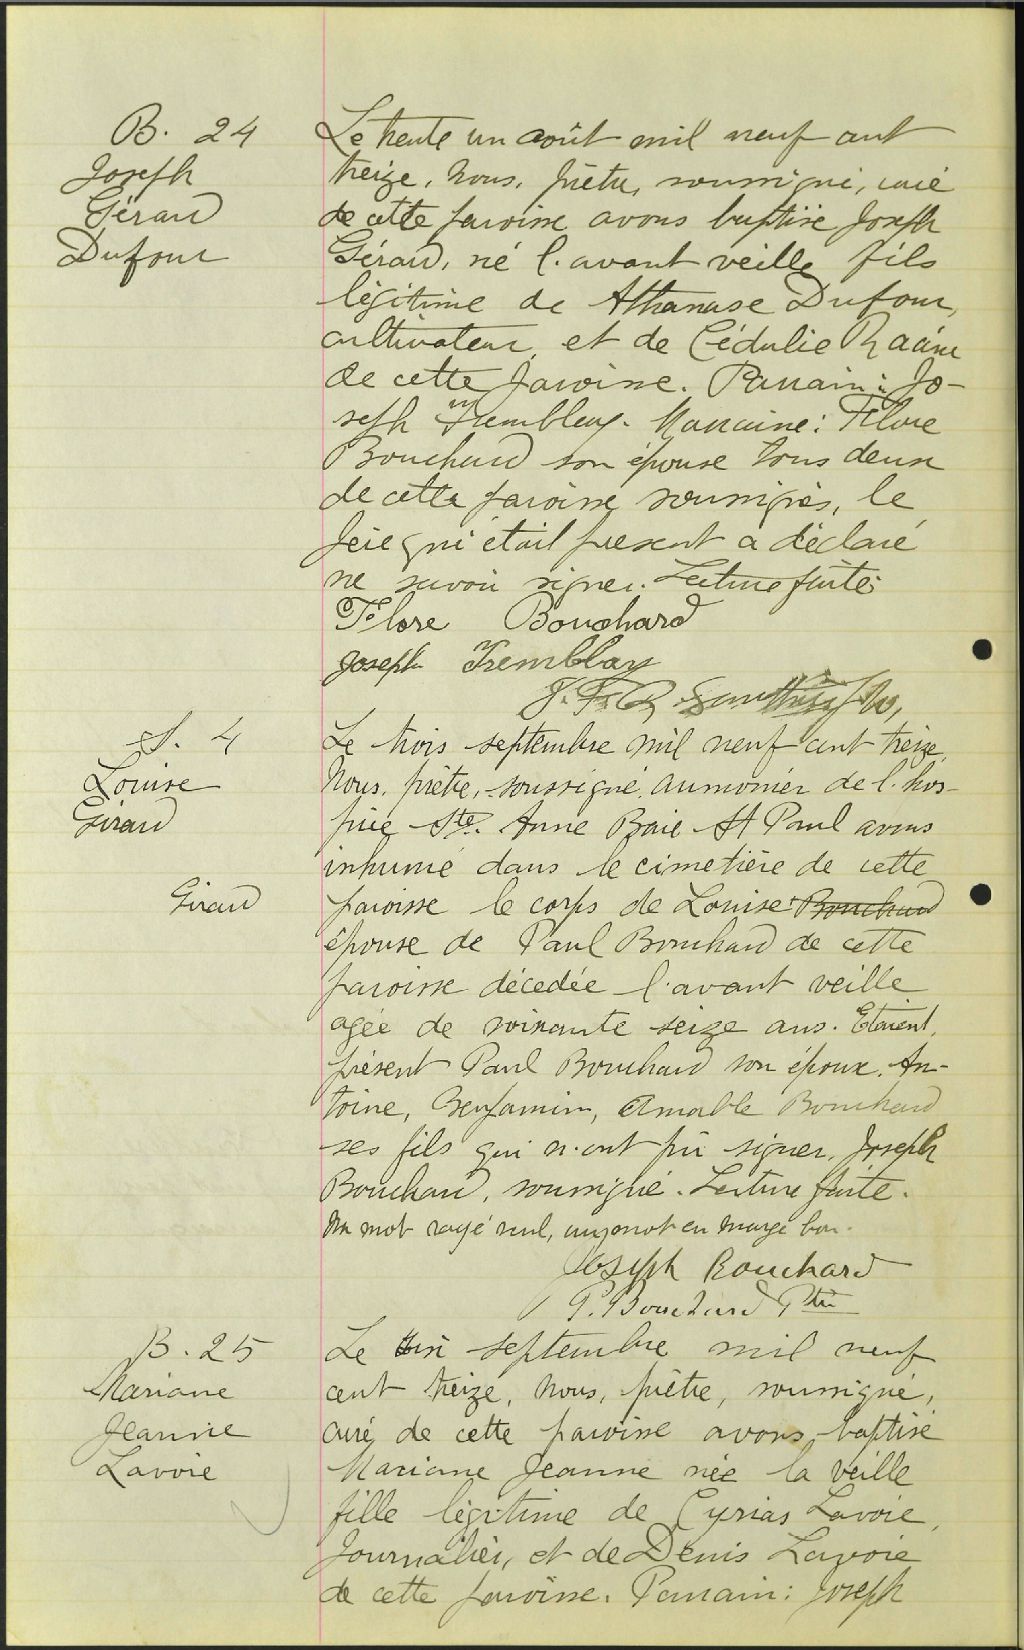 B. 24
Joseph
Gérard
Dufour
Le trente un août mil neuf cent
treize, nous, prêtre, soussigné, curé
de cette paroisse avons baptisé Joseph
Gérard, né l'avant veille fils
légitime de Athanase Dufour,
cultivateur, et de Cédulie Racine
de cette paroisse. Parrain: Jo-
seph Tremblay. Marraine: Flore
Bouchard son épouse tous deux
de cette paroisse soussignés, le
père qui était présent a déclaré
ne savoir signer. Lecture faite.
Flore Bouchard
Joseph Tremblay
S. 4
Louise
Girard
Le trois septembre mil neuf cent treize,
nous, prêtre, soussigné, aumonier de l'hos-
pice Ste. Anne Baie St Paul avons
inhumé dans le cimetière de cette
Girard
paroisse le corps de Louise Bouchard
épouse de Paul Bouchard de cette
paroisse décédée l'avant veille
agée de soixante seize ans. Etaient
présent Paul Bouchard son époux, An-
toine, Benjamin, Amable Bouchard
ses fils qui n'ont pu signer, Joseph
Bouchard, soussigné. Lecture faite.
Un mot rayé nul, un mot en marge bon.
Joseph Bouchard
P. Bouchard Ptre
B. 25
Mariane
Jeanne
Lavoie
Le six septembre mil neuf
cent treize, nous, prêtre, soussigné,
curé de cette paroisse avons baptisé
Mariane Jeanne née la veille
fille légitime de Cyrias Lavoie,
Journalier, et de Denis Lavoie
de cette paroisse. Parrain: Joseph